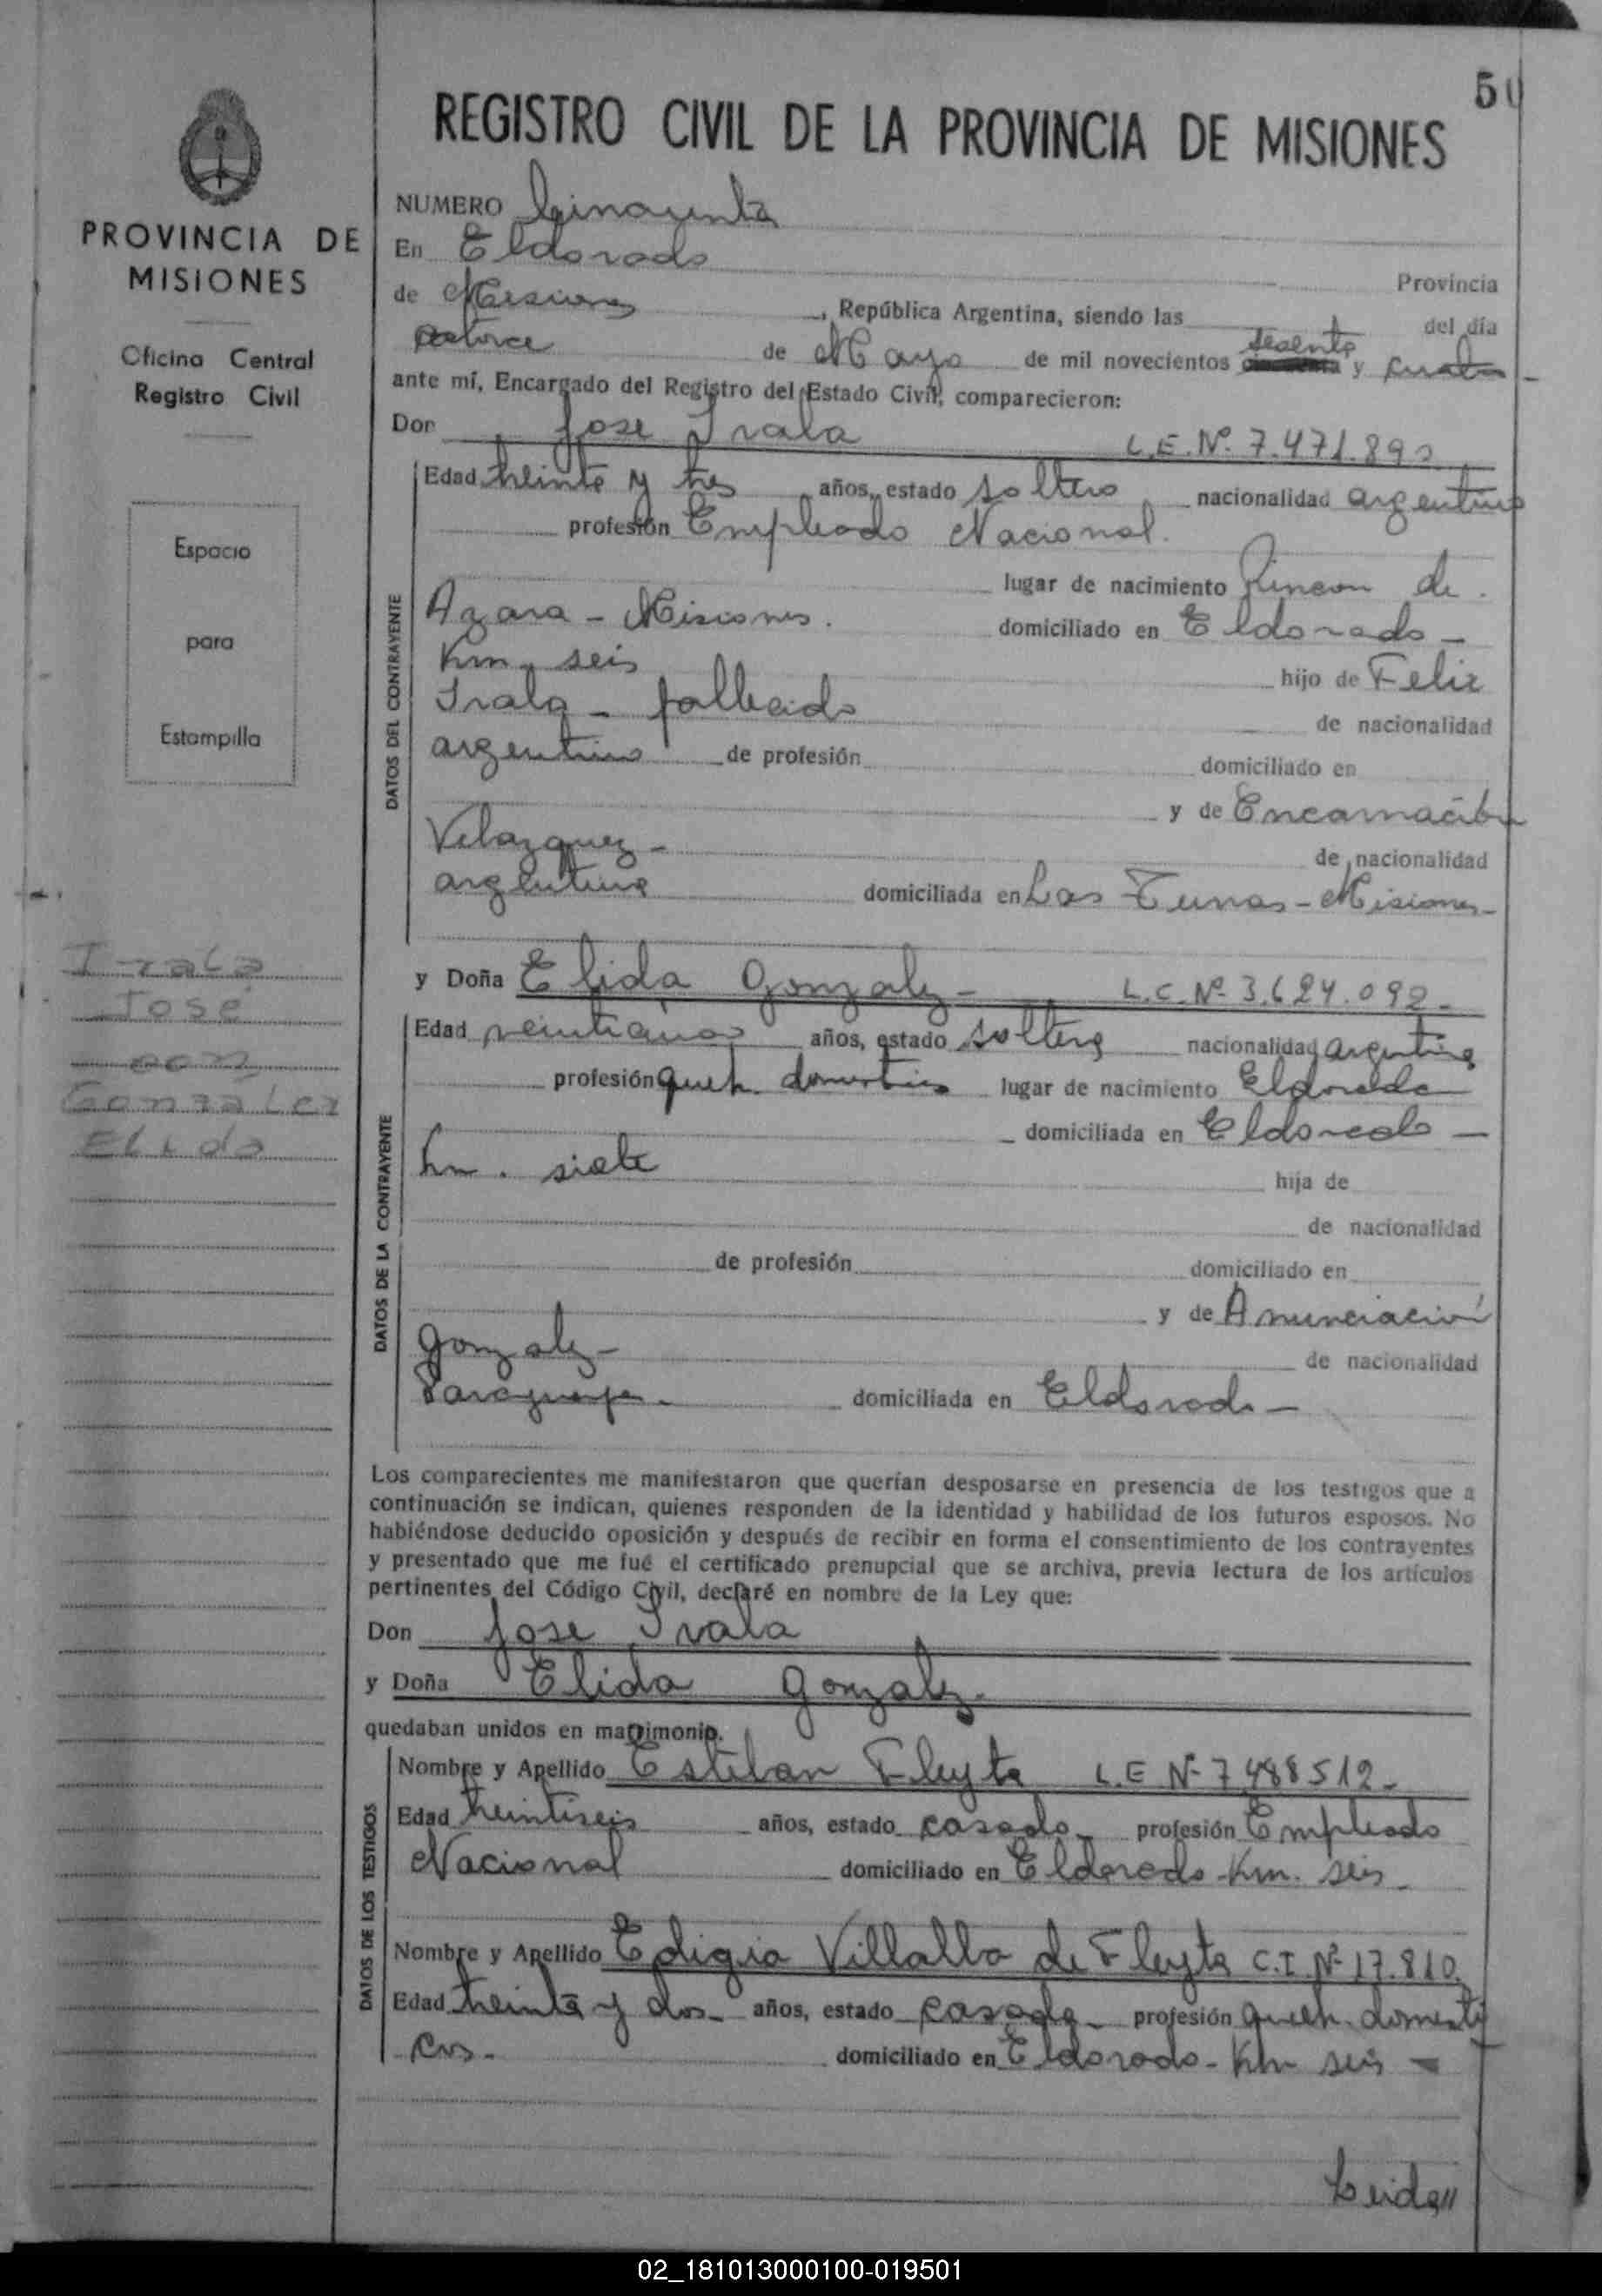 50
REGISTRO CIVIL DE LA PROVINCIA DE MISIONES
PROVINCIA DE
MISIONES
Oficina Central
Registro Civil
Espacio
para
Estampilla
Irala
José
con
Gonzalez
Elida
NUMERO Cincuenta
En Eldorado Provincia
de Misiones, República Argentina, siendo las del día
catorce de Mayo de mil novecientos sesenta y cuatro -
ante mí, Encargado del Registro del Estado Civil, comparecieron:
Don Jose Irala L.E. Nº 7.471.892
DATOS DEL CONTRAYENTE
Edad treinta y tres años, estado soltero nacionalidad argentino
profesión Empleado Nacional.
lugar de nacimiento Rincon de
Azara - Misiones. domiciliado en Eldorado -
Km. seis hijo de Felix
Irala - fallecido de nacionalidad
argentino de profesión domiciliado en
y de Encarnación
Velazquez - de nacionalidad
argentina domiciliada en Las Tunas - Misiones -
y Doña Elida Gonzalez - L.C. Nº 3.624.092 -
DATOS DE LA CONTRAYENTE
Edad años, estado soltera nacionalidad argentina
profesión queh. domesticos lugar de nacimiento Eldorado
domiciliada en Eldorado -
km. siete hija de
de nacionalidad
de profesión domiciliado en
y de Anunciación
Gonzalez - de nacionalidad
Paraguaya - domiciliada en Eldorado -
Los comparecientes me manifestaron que querían desposarse en presencia de los testigos que a
continuación se indican, quienes responden de la identidad y habilidad de los futuros esposos. No
habiéndose deducido oposición y después de recibir en forma el consentimiento de los contrayentes
y presentado que me fué el certificado prenupcial que se archiva, previa lectura de los artículos
pertinentes del Código Civil, declaré en nombre de la Ley que:
Don Jose Irala
y Doña Elida Gonzalez -
quedaban unidos en matrimonio.
DATOS DE LOS TESTIGOS
Nombre y Apellido Esteban Fleyta L.E Nº 7.488512 -
Edad treintiseis años, estado casado - profesión Empleado
Nacional domiciliado en Eldorado - Km. seis -
Nombre y Apellido Edigia Villalba de Fleyta C.I. Nº 17.810.
Edad treinta y dos - años, estado casada - profesión queh. domesti
cos - domiciliado en Eldorado - Km seis -
02_181013000100-019501